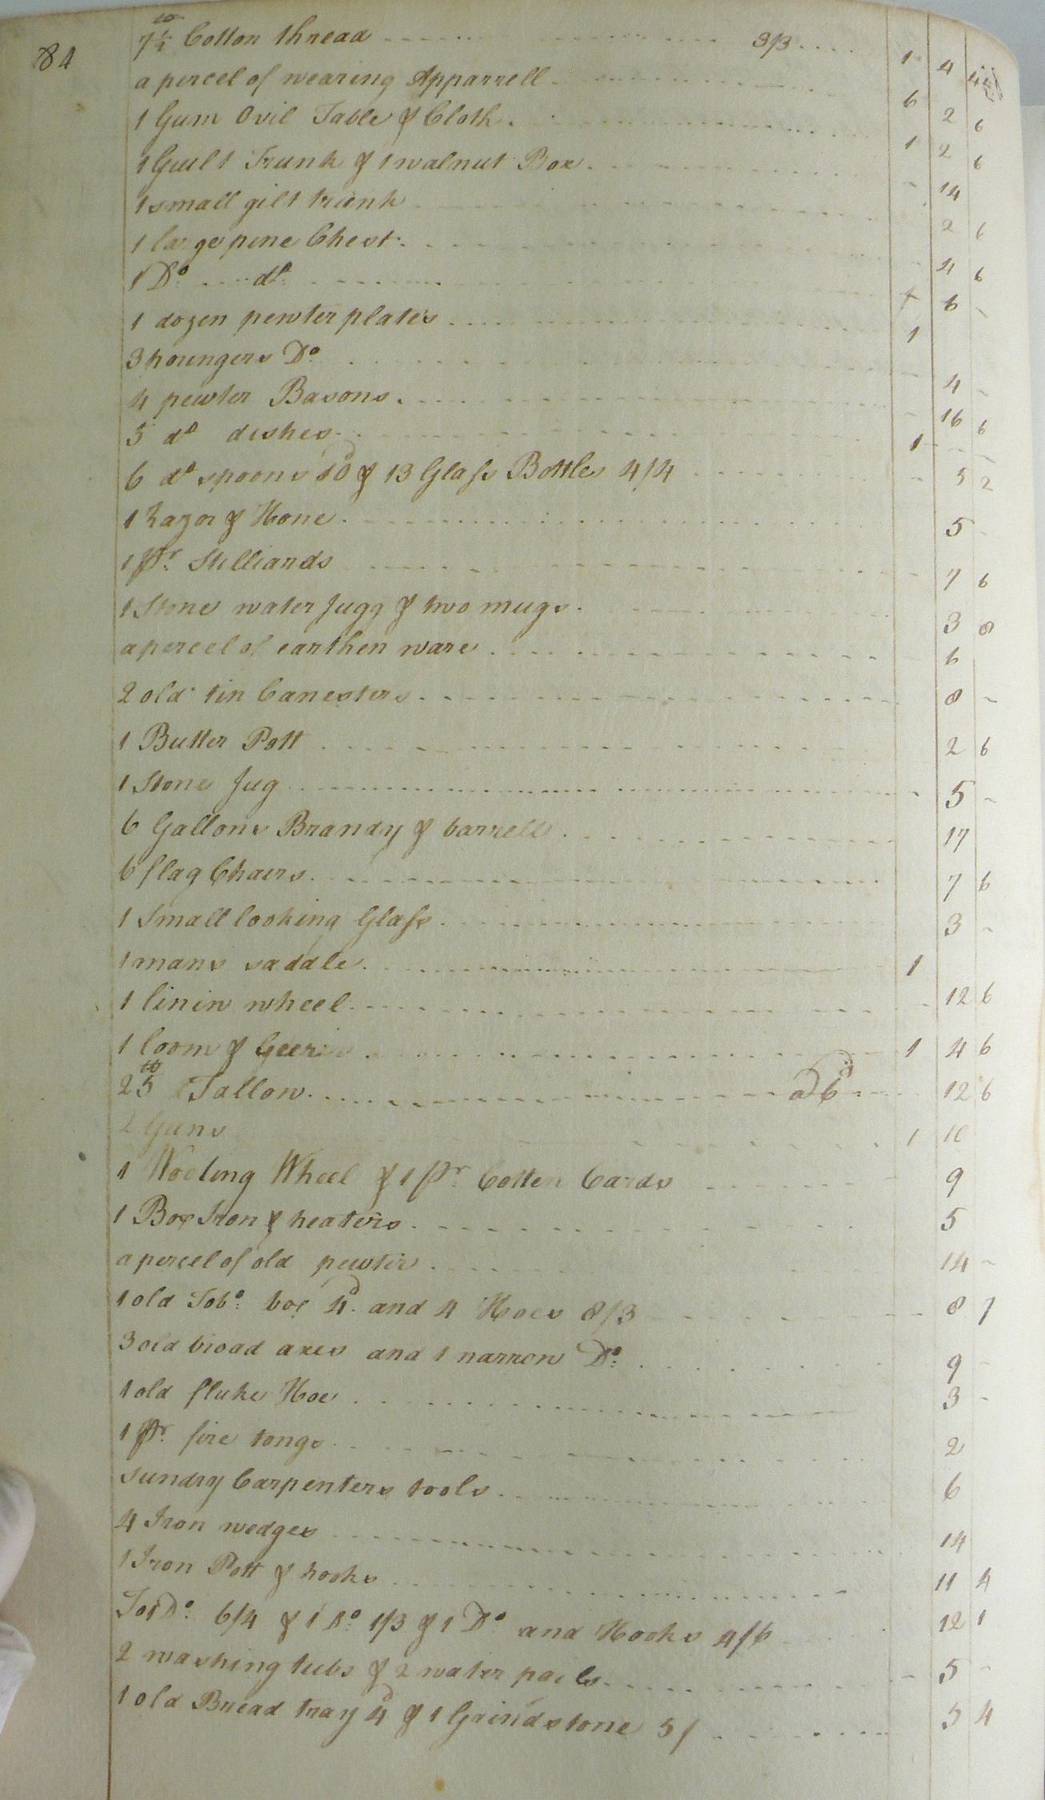 84
7½ lb Cotton thread 3/3 1 4 4½
a percel of wearing Apparrell 6 2 6
1 Gum Ovil Table & Cloth 1 2 6
1 Guilt Trunk & 1 walnut Box - 14
1 small gilt trunk 2 6
1 large pine Chest 4 6
1 Do do 6 -
1 dozen pewter plates 1
3 poungers Do 4 -
4 pewter Basons 16 6
5 do dishes 1 - -
6 do spoons 10d & 13 Glass Bottles 4/4 - 5 2
1 Razor & Hone 5 -
1 pr. Stilliards - 7 6
1 Stone water Jugg & two mugs 3 8
a percel of earthen ware 6
2 old tin Canesters 8 -
1 Butter Pott 2 6
1 Stone Jug - 5 -
6 Gallons Brandy & barrell 17
6 flag Chairs 7 6
1 Small looking Glass 3 -
1 mans saddle 1
1 linin wheel - 12 6
1 loom & Geers 1 4 6
25 lb Tallow a 6d 12 6
2 Guns 1 10
1 Wooling Wheel & 1 pr. Cotten Cards 9
1 Box Iron & heaters 5
a percel of old pewter 14 -
1 old Tobo. box 4d. and 4 Hoes 8/3 8 7
3 old broad axes and 1 narrow Do. 9 -
1 old fluke Hoe 3 -
1 pr. fire tongs 2
Sundry Carpenters tools 6
4 Iron wedges 14
1 Iron Pott & hooks 11 4
To 1 Do. 6/4 & 1 Do. 1/3 & 1 Do and Hooks 4/6 12 1
2 washing tubs & 2 water pails - 5 -
1 old Bread tray 4d & 1 Grindstone 5/ 5 4